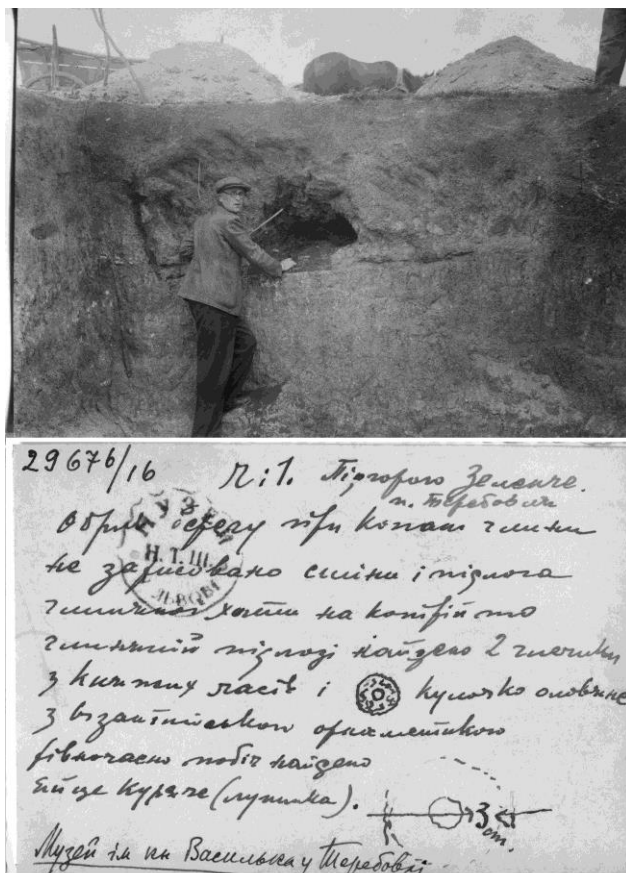 29676/16
Підгорою Зеленче.
п. Теребовля
при копаню глини
МУЗЕЙ
Н.Т.Ш.
ЛЬВОВІ
не зарисовано стіни і підлога
глиняної хати на котрій то
глиняній підлозі найдено 2 глечики
з княжих часів і кулочко оловяне
з візантійською орнаментикою
рівночасно побіч найдено
яйце куряче (лупинка).
3 cm.
Музей ім кн Василька у Теребовлі